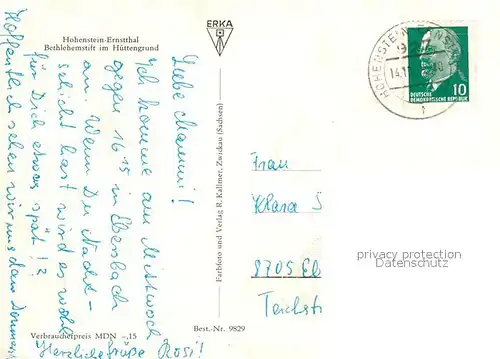 Hohenstein-Ernstthal
Bethlehemstift im Hüttengrund
ERKA
Liebe Mammi!
Ich komme am Mittwoch
gegen 16 15 in Ebersbach
an. Wenn Du Nacht-
schicht hast wird es wohl
für Dich etwas spät!?
Hoffentlich sehen wir uns dann Donners
Herzliche Grüße Rosi!
Verbraucherpreis MDN -,15
Best.-Nr. 9829
Farbfoto und Verlag R. Kallmer, Zwickau (Sachsen)
HOHENSTEIN-ERNST
927
1
DEUTSCHE
DEMOKRATISCHE REPUBLIK
10
Frau
Klara S
8705 Eb
Teichst
privacy protection
Datenschutz